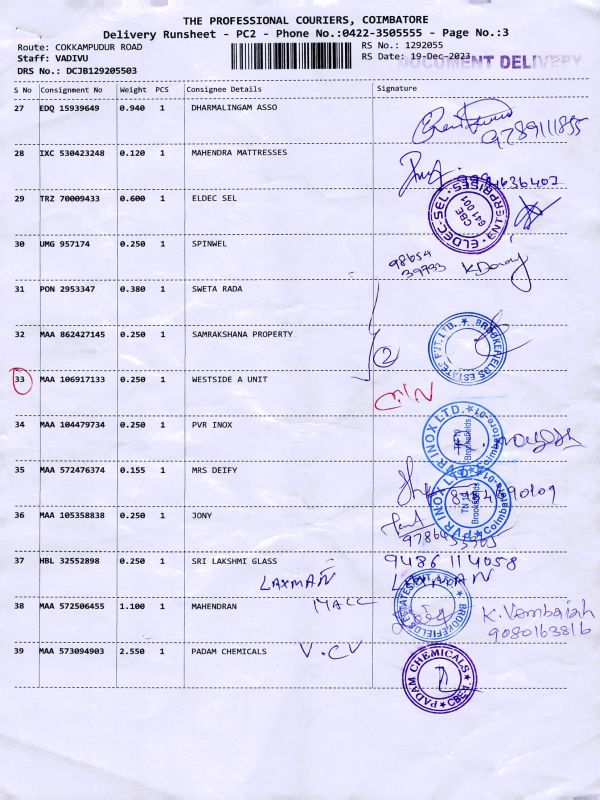 THE PROFESSIONAL COURIERS, COIMBATORE
Delivery Runsheet - PC2 - Phone No.:0422-3505555 - Page No.:3
Route: COKKAMPUDUR ROAD RS No.: 1292055
Staff: VADIVU RS Date: 19-Dec-2023 DOCUMENT DELIVERY
DRS No.: DCJB129205503
S No Consignment No Weight PCS Consignee Details Signature
27 EDQ 15939649 0.940 1 DHARMALINGAM ASSO
9789111855
28 IXC 530423248 0.120 1 MAHENDRA MATTRESSES
29 TRZ 70009433 0.600 1 ELDEC SEL
ELDEC-SEL ENTERPRISES CBE 641 001
30 UMG 957174 0.250 1 SPINWEL
98654
39733
31 PON 2953347 0.380 1 SWETA RADA
32 MAA 862427145 0.250 1 SAMRAKSHANA PROPERTY
BROOKEFIELDS ESTATES PVT. LTD.
2
33 MAA 106917133 0.250 1 WESTSIDE A UNIT
34 MAA 104479734 0.250 1 PVR INOX
PVR INOX LTD. Brookefields Coimbatore-01
35 MAA 572476374 0.155 1 MRS DEIFY
PVR INOX LTD. Brookefields Coimbatore-01
36 MAA 105358838 0.250 1 JONY
37 HBL 32552898 0.250 1 SRI LAKSHMI GLASS
9486114058
LAXMAN LAXMAN
38 MAA 572506455 1.100 1 MAHENDRAN
BROOKEFIELDS ESTATES PVT
K. Vembaiah
9080163816
39 MAA 573094903 2.550 1 PADAM CHEMICALS V.CV
PADAM CHEMICALS CBE-1